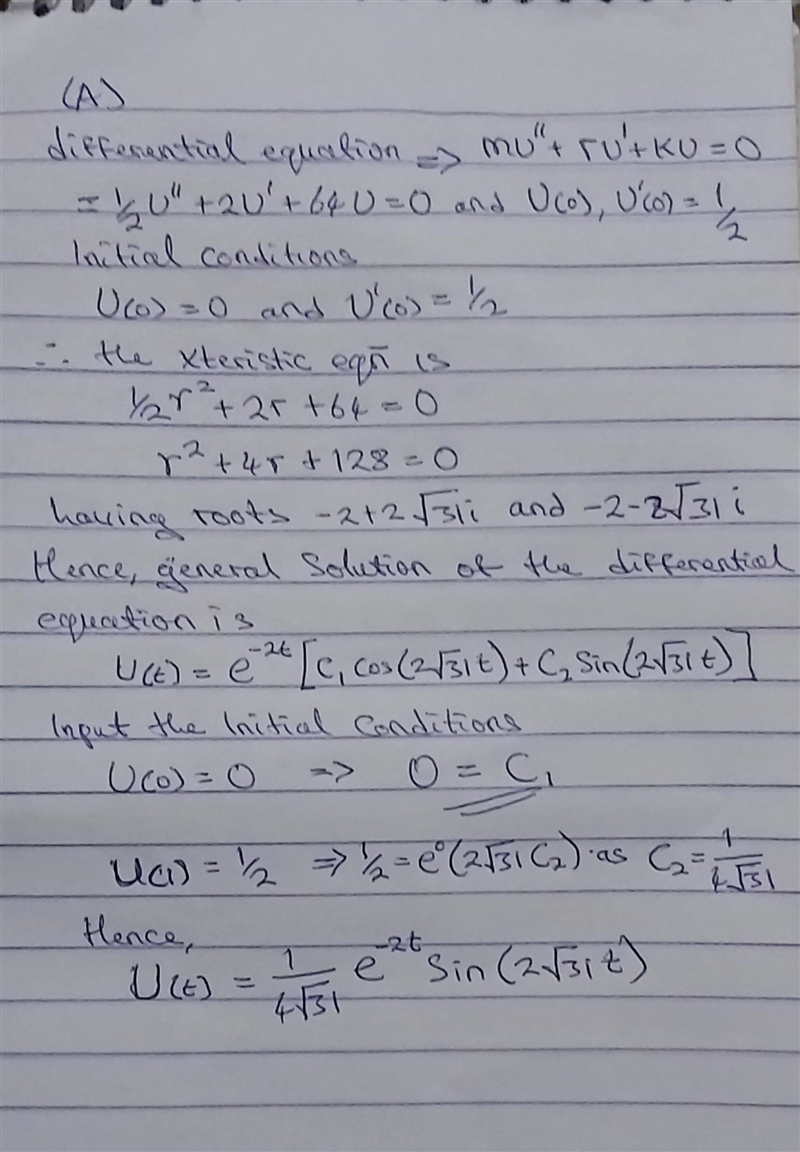 (A)
differential equation => mU'' + rU' + KU = 0
= 1/2 U'' + 2U' + 64U = 0 and U(0), U'(0) = 1/2
Initial conditions
U(0) = 0 and U'(0) = 1/2
∴ the xteristic eqn̄ is
1/2 r² + 2r + 64 = 0
r² + 4r + 128 = 0
having roots -2+2√31i and -2-2√31i
Hence, general solution of the differential
equation is
U(t) = e^-2t [C₁ Cos(2√31t) + C₂ Sin(2√31t)]
Input the Initial Conditions
U(0) = 0 => 0 = C₁
U(1) = 1/2 => 1/2 = e⁰(2√31 C₂) · as C₂ = 1/4√31
Hence,
U(t) = 1/4√31 e^-2t Sin(2√31t)